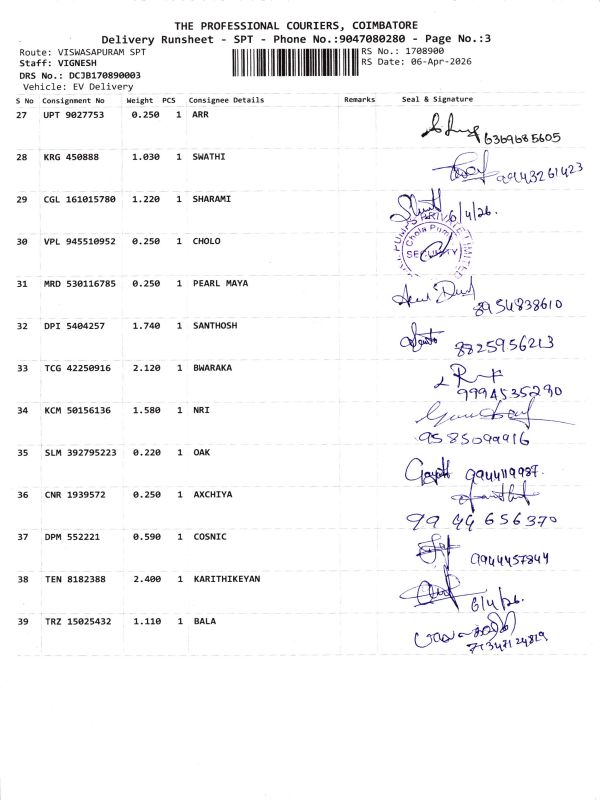 THE PROFESSIONAL COURIERS, COIMBATORE
Delivery Runsheet - SPT - Phone No.:9047080280 - Page No.:3
Route: VISWASAPURAM SPT RS No.: 1708900
Staff: VIGNESH RS Date: 06-Apr-2026
DRS No.: DCJB170890003
Vehicle: EV Delivery
S No Consignment No Weight PCS Consignee Details Remarks Seal & Signature
27 UPT 9027753 0.250 1 ARR
6369685605
28 KRG 450888 1.030 1 SWATHI
99443261423
29 CGL 161015780 1.220 1 SHARAMI
6/4/26.
30 VPL 945510952 0.250 1 CHOLO
Chola Pum
SECURITY
31 MRD 530116785 0.250 1 PEARL MAYA
8954838610
32 DPI 5404257 1.740 1 SANTHOSH
8825956213
33 TCG 42250916 2.120 1 BWARAKA
9994535290
34 KCM 50156136 1.580 1 NRI
9585099916
35 SLM 392795223 0.220 1 OAK
9944119987.
36 CNR 1939572 0.250 1 AXCHIYA
99 44 656370
37 DPM 552221 0.590 1 COSNIC
9944457844
38 TEN 8182388 2.400 1 KARITHIKEYAN
6/4/26.
39 TRZ 15025432 1.110 1 BALA